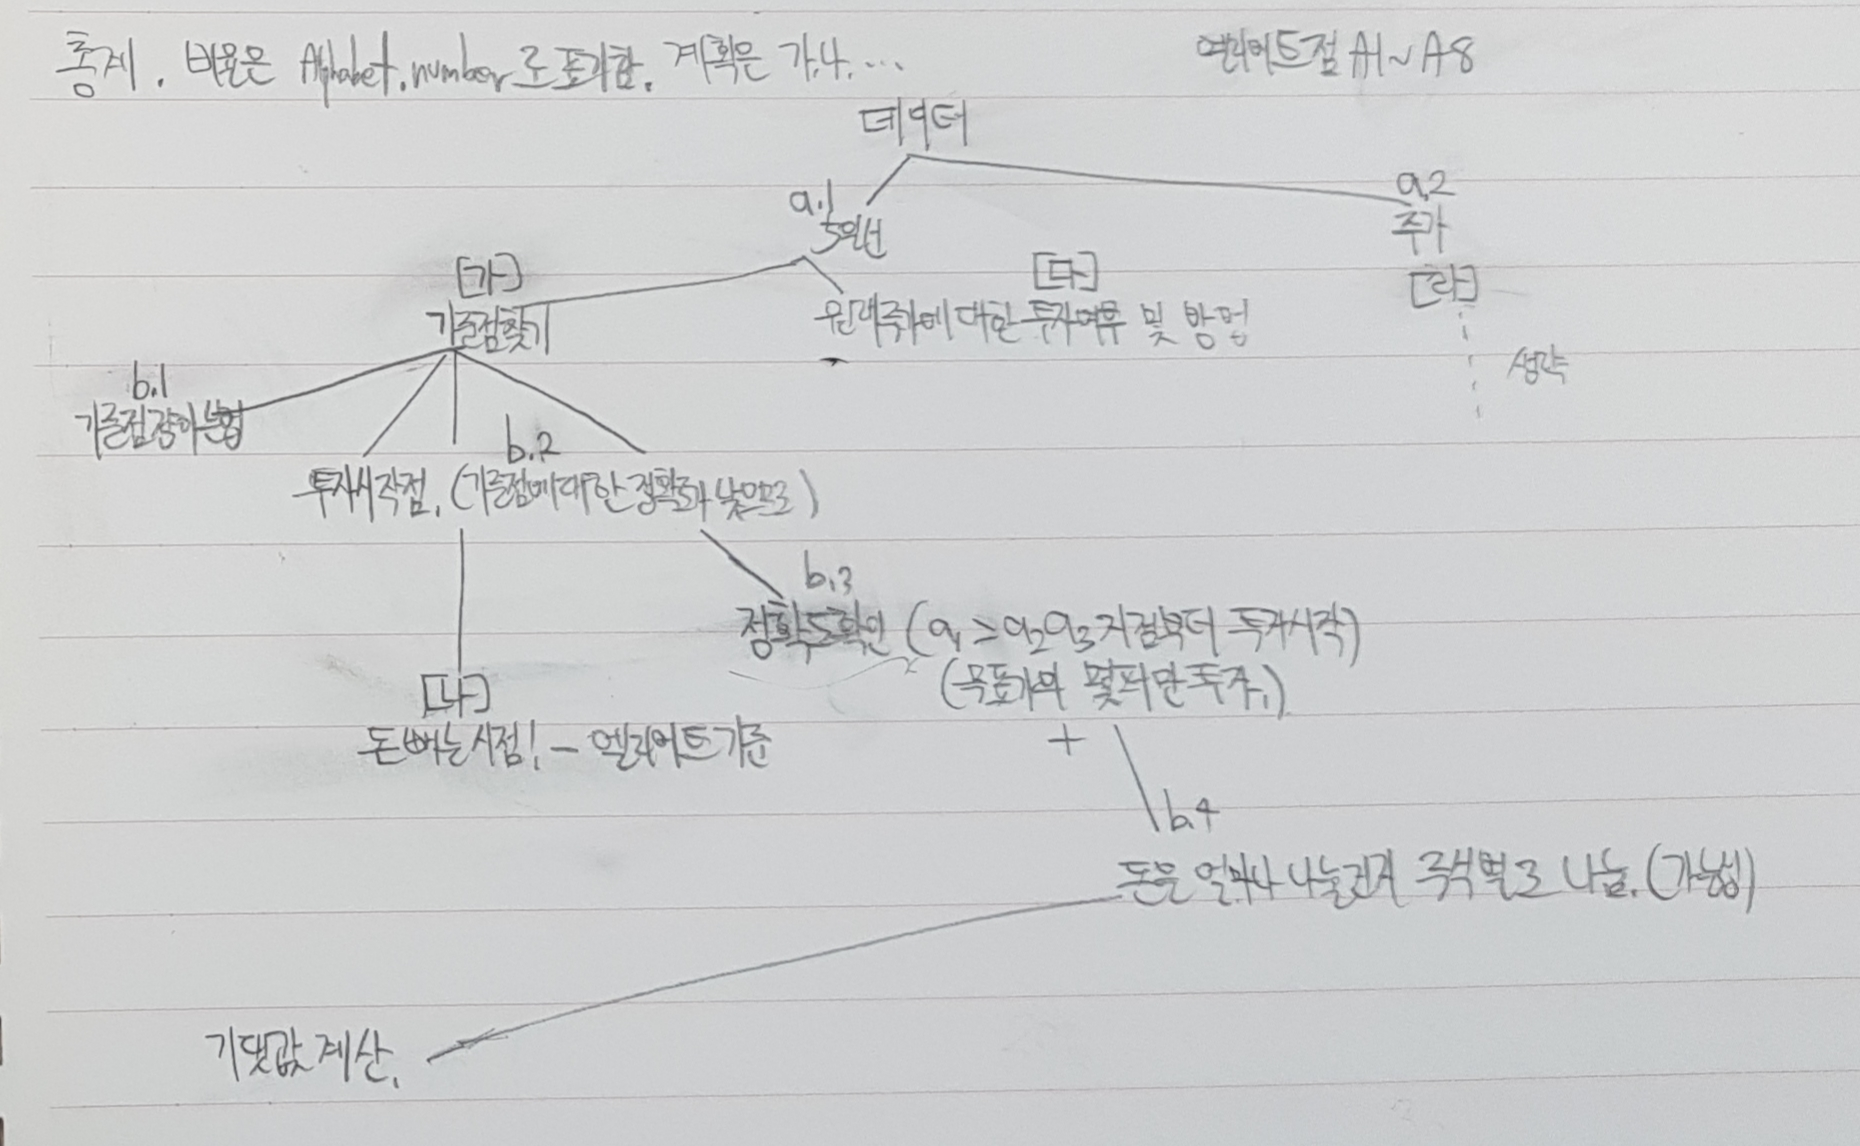 통제. 비율은 Alphabet.number로 표기함. 계획은 가,나,...
엘리어트점 A1~A8
데이터
a.1
5일선
a.2
주가
[가]
기준점찾기
[다]
원래주가에 대한 투자여부 및 방법
[라]
생략
b.1
기준점잡아놓음
b.2
투자시작점. (기준점에대한 정확도가 낮으므로)
b.3
정확도확인 (a₁ ≥ a₂a₃ 지점부터 투자시작)
(목표가의 몇퍼만투자.)
+
[나]
돈 빼는시점! - 엘리어트기준
b.4
돈을 얼마나 나눌건지 주식별로 나눔. (가능성)
기댓값 계산.